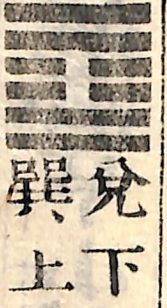 兌下
巽上